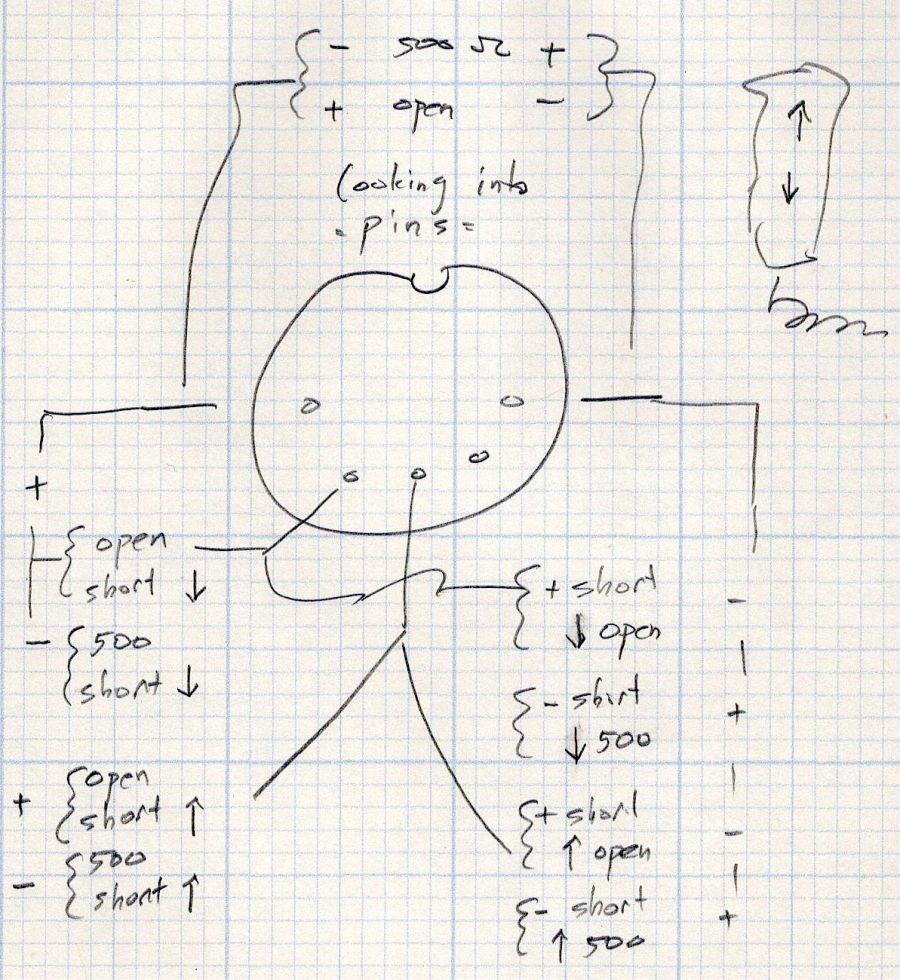 - 500 Ω +
+ open -
↑
↓
looking into
= pins =
+
open
short ↓
- 500
short ↓
+ open
short ↑
- 500
short ↑
+ short -
↓ open
- short +
↓ 500
+ short -
↑ open
- short +
↑ 500